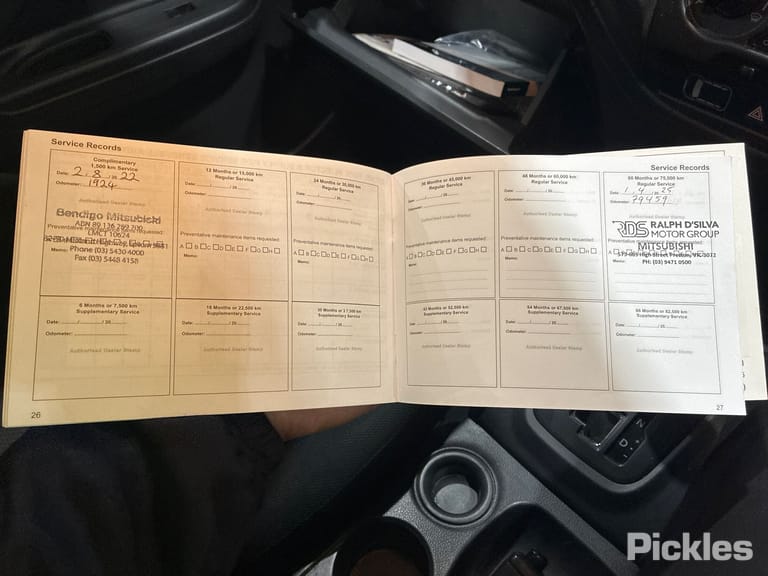 Service Records
Complimentary
1,500 km Service
Date: 2 . 8 . 20 22
Odometer: 1924
Authorised Dealer Stamp
Bendigo Mitsubishi
LMCT 10624
Preventative maintenance items requested:
Phone (03) 5430 4000
Fax (03) 5448 4158
Memo:
12 Months or 15,000 km
Regular Service
Date: ....../....../ 20......
Odometer:
Authorised Dealer Stamp
Preventative maintenance items requested:
A B C D E F G H
Memo:
24 Months or 30,000 km
Regular Service
Date: ....../....../ 20......
Odometer:
Authorised Dealer Stamp
Preventative maintenance items requested:
A B C D E F G H
Memo:
6 Months or 7,500 km
Supplementary Service
Date: ....../....../ 20......
Odometer:
Authorised Dealer Stamp
18 Months or 22,500 km
Supplementary Service
Date: ....../....../ 20......
Odometer:
Authorised Dealer Stamp
30 Months or 37,500 km
Supplementary Service
Date: ....../....../ 20......
Odometer:
Authorised Dealer Stamp
26
Service Records
36 Months or 45,000 km
Regular Service
Date: ....../....../ 20......
Odometer:
Authorised Dealer Stamp
Preventative maintenance items requested:
A B C D E F G H
Memo:
48 Months or 60,000 km
Regular Service
Date: ....../....../ 20......
Odometer:
Authorised Dealer Stamp
Preventative maintenance items requested:
A B C D E F G H
Memo:
60 Months or 75,000 km
Regular Service
Date: 1 . 4 . 20 25
Odometer: 79459
RDS RALPH D'SILVA
MOTOR GROUP
MITSUBISHI
High Street Preston, VIC 3072
PH: (03) 9471 0500
Memo:
42 Months or 52,500 km
Supplementary Service
Date: ....../....../ 20......
Odometer:
Authorised Dealer Stamp
54 Months or 67,500 km
Supplementary Service
Date: ....../....../ 20......
Odometer:
Authorised Dealer Stamp
66 Months or 82,500 km
Supplementary Service
Date: ....../....../ 20......
Odometer:
Authorised Dealer Stamp
27
N
D
Pickles